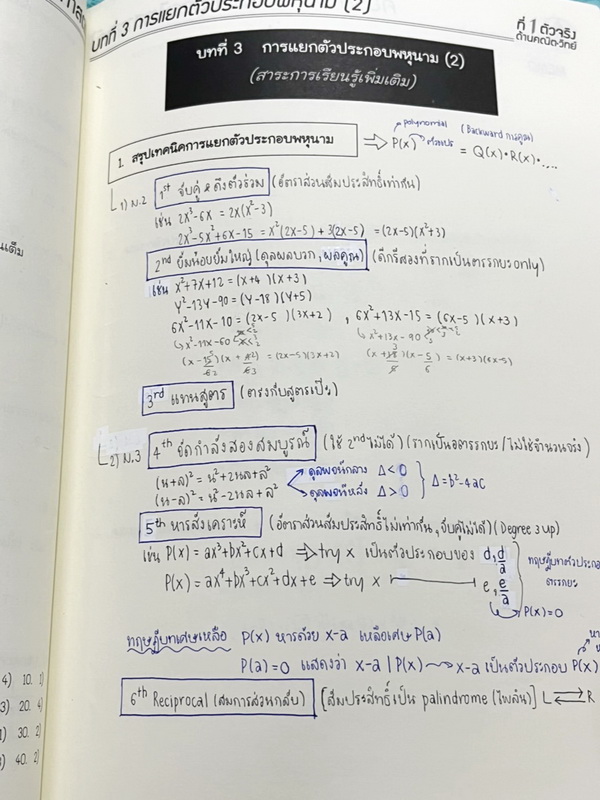 บทที่ 3 การแยกตัวประกอบพหุนาม (2)
ที่ 1 ตัวจริง
ด้านคณิต-วิทย์
บทที่ 3 การแยกตัวประกอบพหุนาม (2)
(สาระการเรียนรู้เพิ่มเติม)
1. สรุปเทคนิคการแยกตัวประกอบพหุนาม
polynomial (Backward การคูณ)
⇒ P(x) = Q(x)·R(x)·....
1) ม.2 1st จับคู่ & ดึงตัวร่วม (อัตราส่วนสัมประสิทธิ์เท่ากัน)
เช่น 2x³-6x = 2x(x²-3)
2x³-5x²+6x-15 = x²(2x-5)+3(2x-5) = (2x-5)(x²+3)
2nd ยิ้มน้อยยิ้มใหญ่ (ดุลผลบวก, ผลคูณ) (ดีกรีสองที่รากเป็นตรรกยะ only)
เช่น x²+7x+12 = (x+4)(x+3)
y²-13y-90 = (y-18)(y+5)
6x²-11x-10 = (2x-5)(3x+2) , 6x²+13x-15 = (6x-5)(x+3)
x²-11x-60 x²+13x-90
= (2x-5)(3x+2) = (x+3)(6x-5)
3rd แทนสูตร (ตรงกับสูตรเป๊ะ)
2) ม.3 4th จัดกำลังสองสมบูรณ์ (ใช้ 2nd ไม่ได้) (รากเป็นอตรรกยะ/ไม่ใช่จำนวนจริง)
(น+ล)² = น²+2นล+ล² ดุลพจน์กลาง Δ<0
(น-ล)² = น²-2นล+ล² ดุลพจน์หลัง Δ>0 } Δ=b²-4ac
5th หารสังเคราะห์ (อัตราส่วนสัมประสิทธิ์ไม่เท่ากัน, จับคู่ไม่ได้) (Degree 3 up)
เช่น P(x) = ax³+bx²+cx+d ⇒ try x เป็นตัวประกอบของ d, d/a
P(x) = ax⁴+bx³+cx²+dx+e ⇒ try x e, e/a
ทฤษฎีบทตัวประกอบ
ตรรกยะ
P(x)=0
ทฤษฎีบทเศษเหลือ P(x) หารด้วย x-a เหลือเศษ P(a)
P(a)=0 แสดงว่า x-a | P(x) → x-a เป็นตัวประกอบ P(x)
6th Reciprocal (สมการส่วนกลับ) [สัมประสิทธิ์เป็น palindrome (ไพลิน)] L ⇄ R
4) 10. 1)
3) 20. 4)
1) 30. 2)
3) 40. 2)